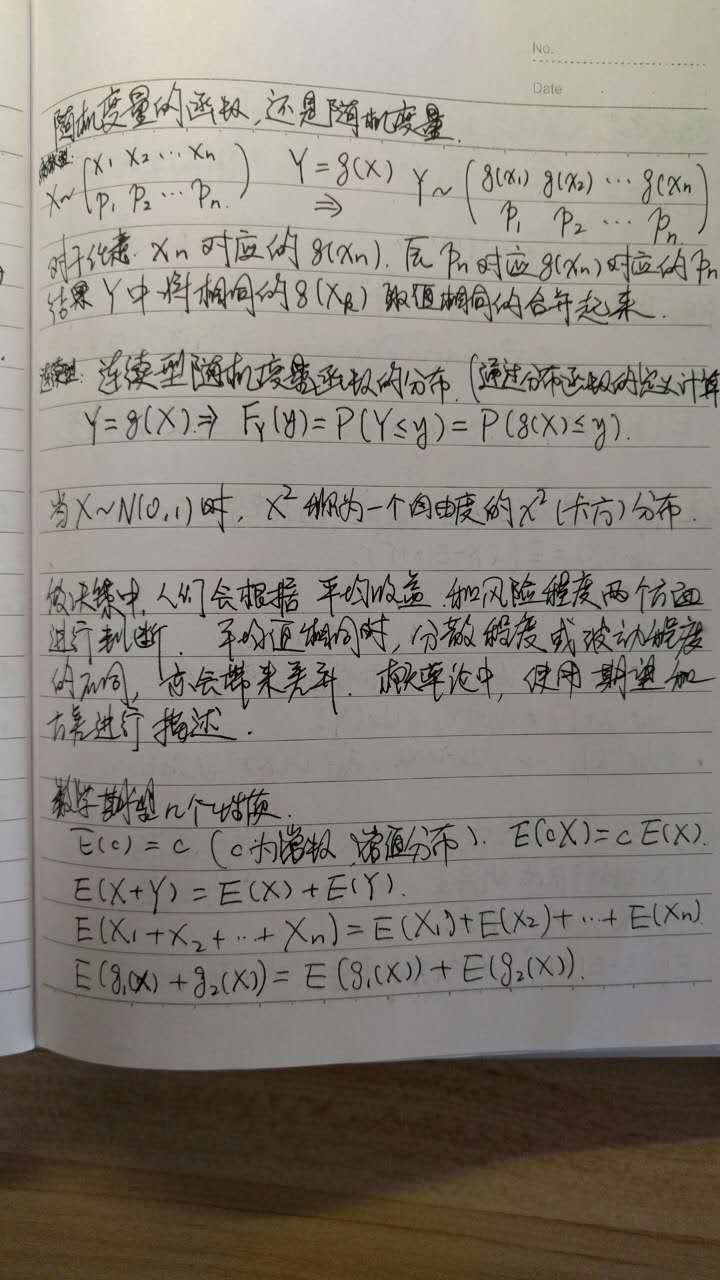 No.
Date
随机变量的函数,还是随机变量.
离散型:
X~(x₁ x₂ … xₙ / p₁ p₂ … pₙ) Y=g(X) ⇒ Y~(g(x₁) g(x₂) … g(xₙ) / p₁ p₂ … pₙ)
对于任意 xₙ 对应的 g(xₙ). 而 pₙ 对应 g(xₙ) 对应的 pₙ
结果 Y 中将相同的 g(Xₖ) 取值相同的合并起来.
连续型: 连续型随机变量函数的分布. (通过分布函数的定义计算
Y=g(X).⇒ F_Y(y)=P(Y≤y)=P(g(X)≤y).
当X~N(0,1)时, X² 称为一个自由度的χ²(卡方)分布.
做决策中,人们会根据 平均收益 和风险程度两个方面
进行判断. 平均值相同时,分散程度或波动程度
的不同,亦会带来差异. 概率论中,使用期望和
方差进行描述.
数学期望几个性质.
E(c) = c (c为常数 常值分布). E(cX)=c E(X).
E(X+Y) = E(X)+E(Y).
E(X₁+X₂+…+Xₙ)=E(X₁)+E(X₂)+…+E(Xₙ)
E(g₁(X)+g₂(X))= E(g₁(X))+E(g₂(X)).